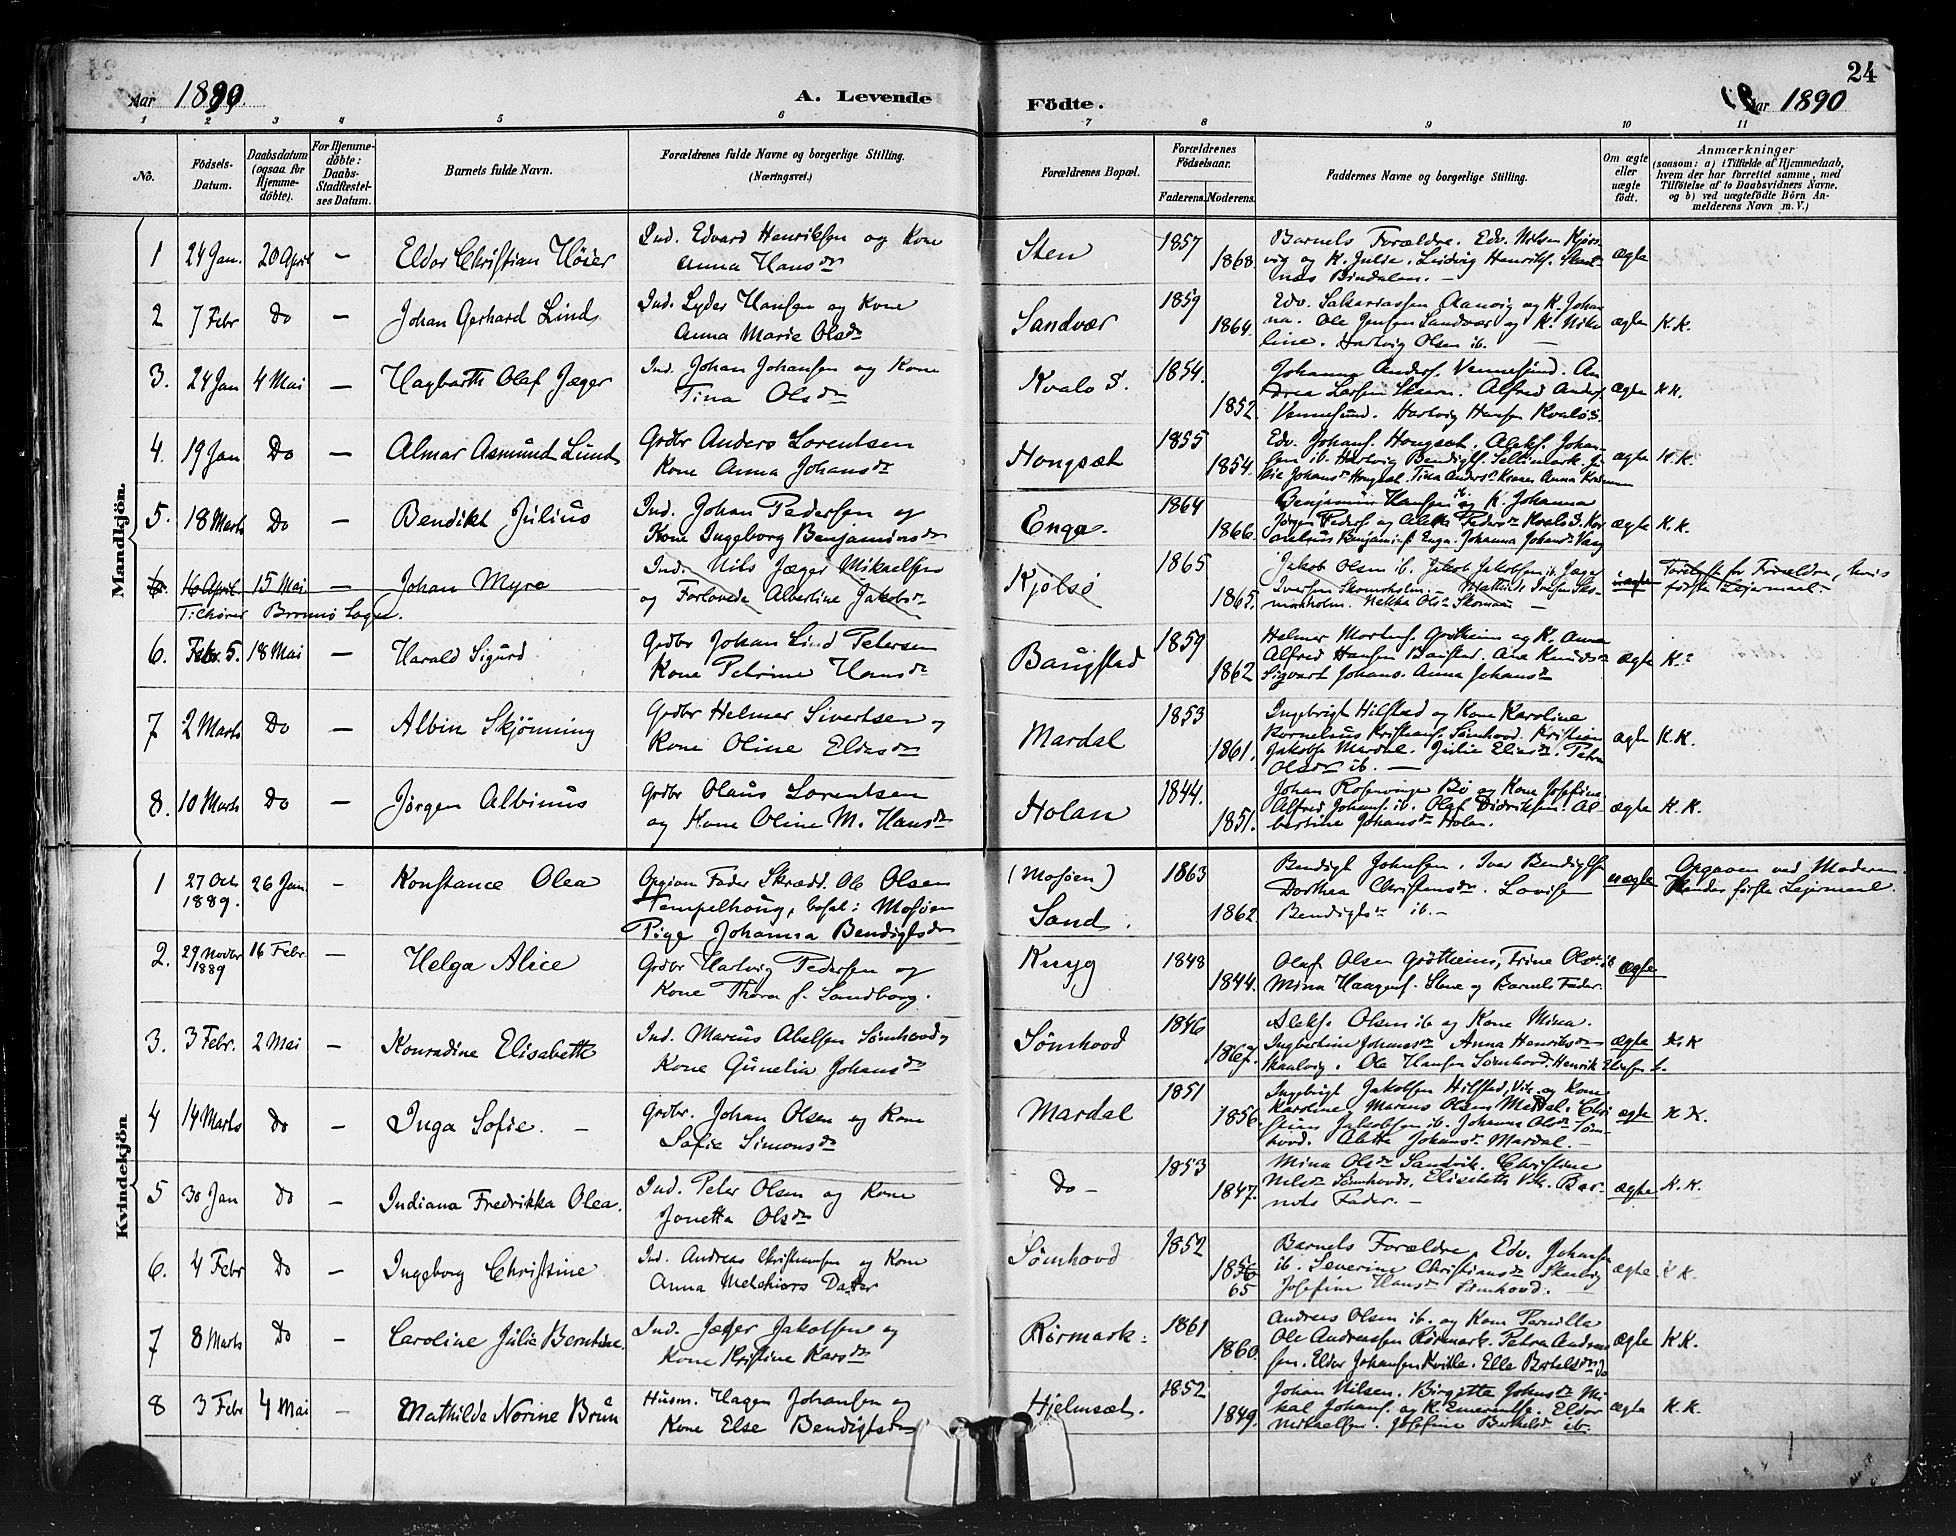 24
Aar 1890. A. Levende Födte. Aar 1890
1 2 3 4 5 6 7 8 9 10 11
No.
Födsels-Datum.
Daabsdatum (ogsaa for Hjemmedöbte).
For Hjemmedöbte: Daabs-Stadfæstelses Datum.
Barnets fulde Navn.
Forældrenes fulde Navne og borgerlige Stilling. (Næringsvei.)
Forældrenes Bopæl.
Forældrenes Födselsaar.
Faderens. Moderens.
Faddernes Navne og borgerlige Stilling.
Om ægte eller uægte födt.
Anmærkninger
(saasom: a) i Tilfælde af Hjemmedaab, hvem der har forrettet samme, med Tilföielse af to Daabsvidners Navne, og b) ved uægtefödte Börn Anmelderens Navn m. V.)
Mandkjön.
1 24 Jan. 20 April – Eldor Christian Höier Ind. Edvard Henriksen og Kone Anna Hansdr Sten 1857 1868. Barnets Forældre. Edv. Nilsen og K. Julie. Ludvig Henriks. Bindalen. – ægte
2 7 Febr Do – Johan Gerhard Lind Ind. Lyder Hansen og Kone Anna Marie Olsdr Sandvær 1859 1864. Edv. Sakariassen og K. Johanna. Ole Jensen Sandvær og K. Nikoline. Hartvig Olsen ib. – ægte K.K.
3. 24 Jan 4 Mai – Hagbarth Olaf Jæger Ind. Johan Johansen og Kone Tina Olsdr Kvalø S. 1854. 1852. Johanna Anders. Vennesund. Andrea Larsen. Alfred Anders. Vennesund. Hartvig Hansen Kvaløs. ægte K.K.
4. 19 Jan Do – Almar Asmund Lund Grdbr Anders Lorentsen Kone Anna Johansdr Hongsæt 1855 1854. Edv. Johans. Hongsæt. Aleks. Johansen ib. Hartvig Bendigts. Johansdr Hongsæt. Tina Andersdr Anna ægte K.K.
5. 18 Marts Do – Bendikt Julius Ind. Johan Pedersen og Kone Ingeborg Benjaminsdr Enga. 1864 1866. Benjamin Hansen ib. og K. Johanna Jörgen Peders. og Pedersdr Kvalø S. Kornelius Benjamins. Enga. Johanna Johansdr Vang ægte K.K.
6. 16 April 15 Mai – Johan Myre Ind. Nils Jæger Mikaelsen og Forlovede Albertine Jakobsdr Kjølsø 1865 1865. Jakob Olsen ib. Jakob Jakobsen ib. Jæger Iversen Skomoholm. – Mathilde Iversen Skomoholm. Nekka Olsdr – uægte for Forældre, hvis første Leiermaal. –
Tilhører Brønnø Sogn.
6. Febr. 5. 18 Mai – Harald Sigurd Grdbr Johan Lind Petersen Kone Petrine Hansdr Baugstad 1859 1862 Helmer Mortens. Grøtheim og K. Anna Alfred Hansen Baustad. Ane Knudsdr Sigvart Johans. Anna Johansdr ægte K.
7 2 Marts Do – Albin Skjønning Grdbr Helmer Sivertsen og Kone Oline Eliasdr Mardal 1853 1861. Ingebrigt Hilstad og Kone Karoline Kornelius Kristians. Sømhovd. Kristian Jakobs. Mardal. Julie Eliasdr. Petra Olsdr ib. – ægte K.K.
8. 10 Marts Do – Jørgen Albinus Grdbr Olaus Lorentsen og Kone Oline M. Hansdr Holan 1844. 1851. Johan Rosenvinge Bø og Kone Josefine Alfred Johans. ib. Olaf Didriksen. Albertine Johansdr Holan. ægte K.K.
Kvindekjön
1 27 Oct 1889. 26 Jan. – Konstance Olea Opgiven Fader Skrædd. Ole Olsen Tempelhaug, bosat: Mosjøen Pige Johanna Bendigtsdr (Mosjøen) Sand. 1863 1862. Bendigt Johnsen. Iver Bendigtsen Dorthea Christensdr. Lovise Bendigtsdr ib. – uægte Opgaven ved Moderen. Hendes første Leiermaal.
2. 29 Novbr 1889 16 Febr. – Helga Alice Grdbr Hartvig Pedersen og Kone Thora f. Sandborg. Kryg 1848 1844. Olaf Olsen Grøtheim, Trine Olsdr ib Mina Haagens. Stene og Barnets Fader. ægte
3. 3 Febr. 2 Mai – Konradine Elisabeth Ind. Marius Abelsen Sømhovd og Kone Gunelia Johansdr Sømhovd 1846 1867. Aleks. Olsen ib. og Kone Mina. Ingbertine Johansdr Anna Henriksdr Skaalvig. Ole Hansen Sømhovd. Henrik ægte K.K
4 14 Marts Do – Inga Sofie. – Grdbr. Johan Olsen og Kone Sofie Simonsdr Mardal 1851 1856 Ingebrigt Jakobsen Hilstad, Vik. og Kone Karoline. Marius Olsen Mardal. Christian Jakobsen ib. Johanna Olsdr Sømhovd. Aletta Johansdr Mardal. – ægte K.K.
5 30 Jan Do – Indiana Fredrikka Olea. Ind. Peter Olsen og Kone Jonetta Olsdr Do – 1853 1847. Mina Olsdr Sandvik. Christine Nilsdr Sømhovd. Elisabeth Vik. Barnets Fader. – ægte K.K.
6. 4 Febr Do – Ingeborg Christine Ind. Andreas Christiansen og Kone Anna Melchiors Datter Sømhovd 1852 1856 65 Barnets Forældre, Edv. Johansen ib. Severine Christiansdr Skaalvig Josefine Hansdr Sømhovd. – ægte K.K.
7 8 Marts Do – Caroline Julie Berntine. Ind. Jæger Jakobsen og Kone Kristine Larsdr Rørmark. 1861 1860. Andreas Olsen ib. og Kone Pernilla Ole Andreassen Rørmark. Petra Andreassen. Eldor Johansen Elle Bertelsdr do ægte K.K.
8 3 Febr 4 Mai – Mathilde Norine Brun Husm. Hagen Johansen og Kone Else Bendigtsdr Hjelmsæt. 1852 1849. Johan Nilsen. Birgitte Johnsdr Mikal Johans. og K. Emerentse. Eldor Mikaelsen. Josefine ib. ægte K.K.